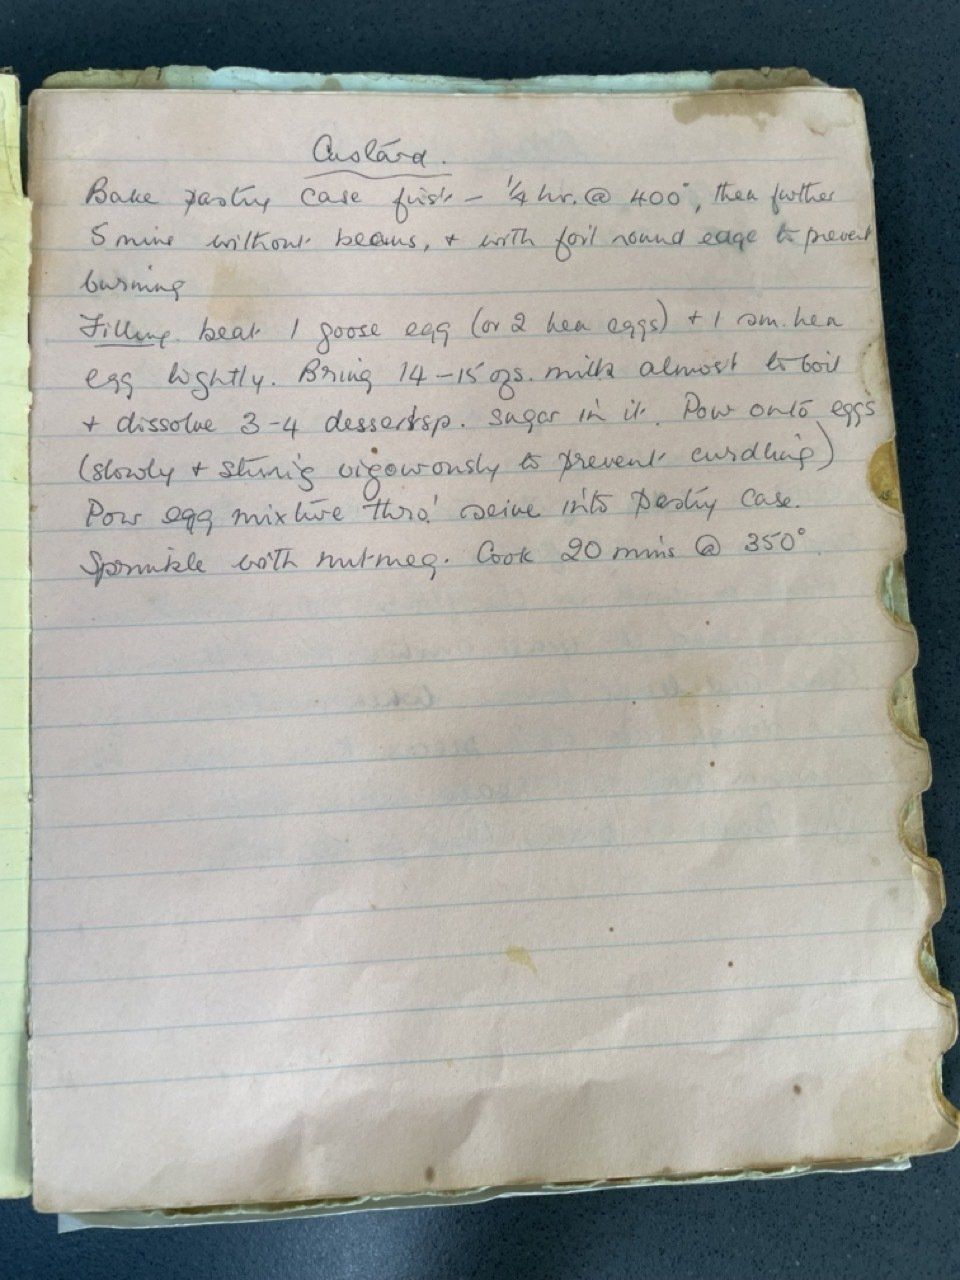 Custard.
Bake pastry case first - 1/4 hr. @ 400°, then further
5 mins without beans, + with foil round edge to prevent
burning
Filling. beat 1 goose egg (or 2 hen eggs) + 1 sm. hen
egg lightly. Bring 14-15 ozs. milk almost to boil
+ dissolve 3-4 dessertsp. sugar in it. Pour onto eggs
(slowly + stirring vigourously to prevent curdling)
Pour egg mixture thro' seive into pastry case.
Sprinkle with nutmeg. Cook 20 mins @ 350°.